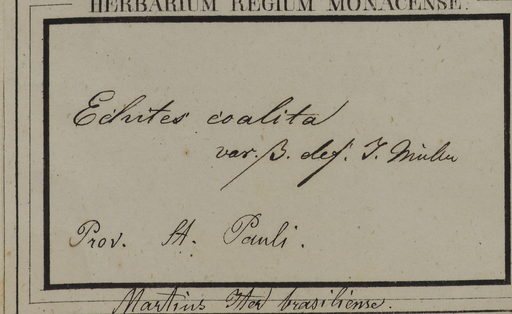 HERBARIUM REGIUM MONACENSE.
Echites coalita
var. β. def. J. Müller
Prov. St. Pauli.
Martius Iter brasiliense.